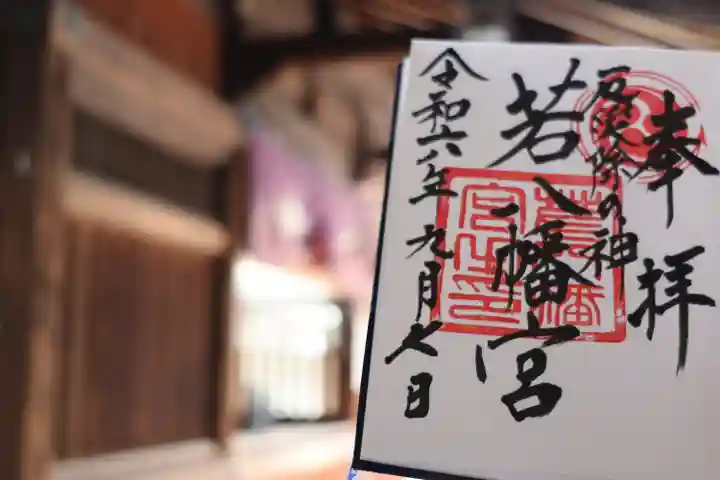 奉拝
厄災除の神
若八幡宮
令和六年九月七日